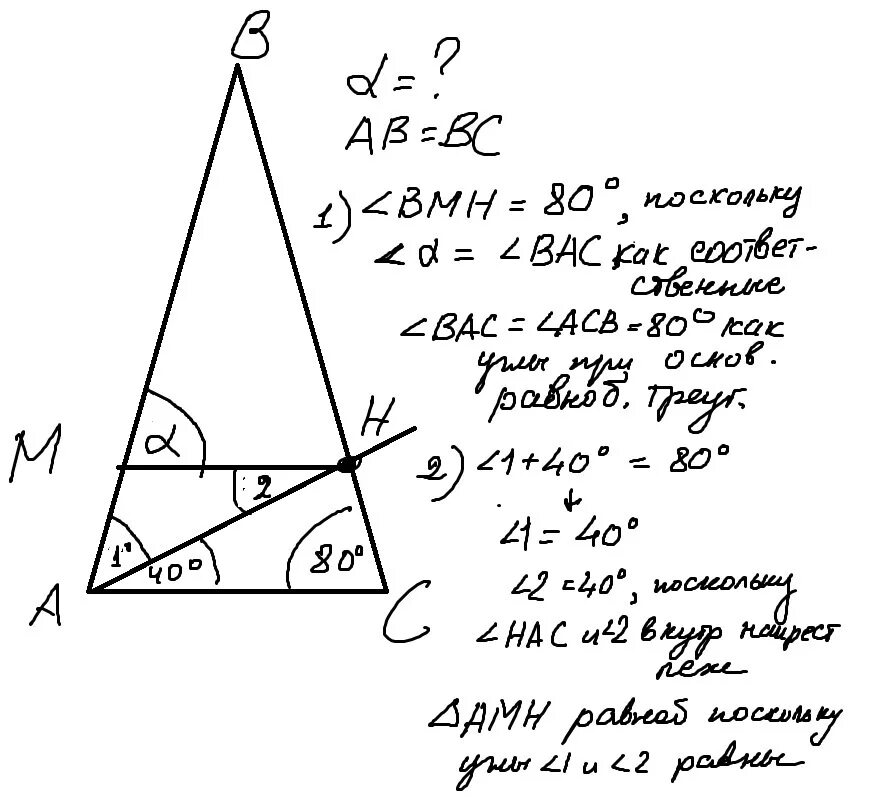 B
α = ?
AB = BC
1) ∠BMH = 80°, поскольку
∠α = ∠BAC как соответ-
ственные
∠BAC = ∠ACB = 80° как
углы при основ.
равноб. треуг.
M
α
H
2) ∠1 + 40° = 80°
2
∠1 = 40°
1
40°
80°
A
C
∠2 = 40°, поскольку
∠HAC и ∠2 внутр накрест
леж
△AMH равноб поскольку
углы ∠1 и ∠2 равны